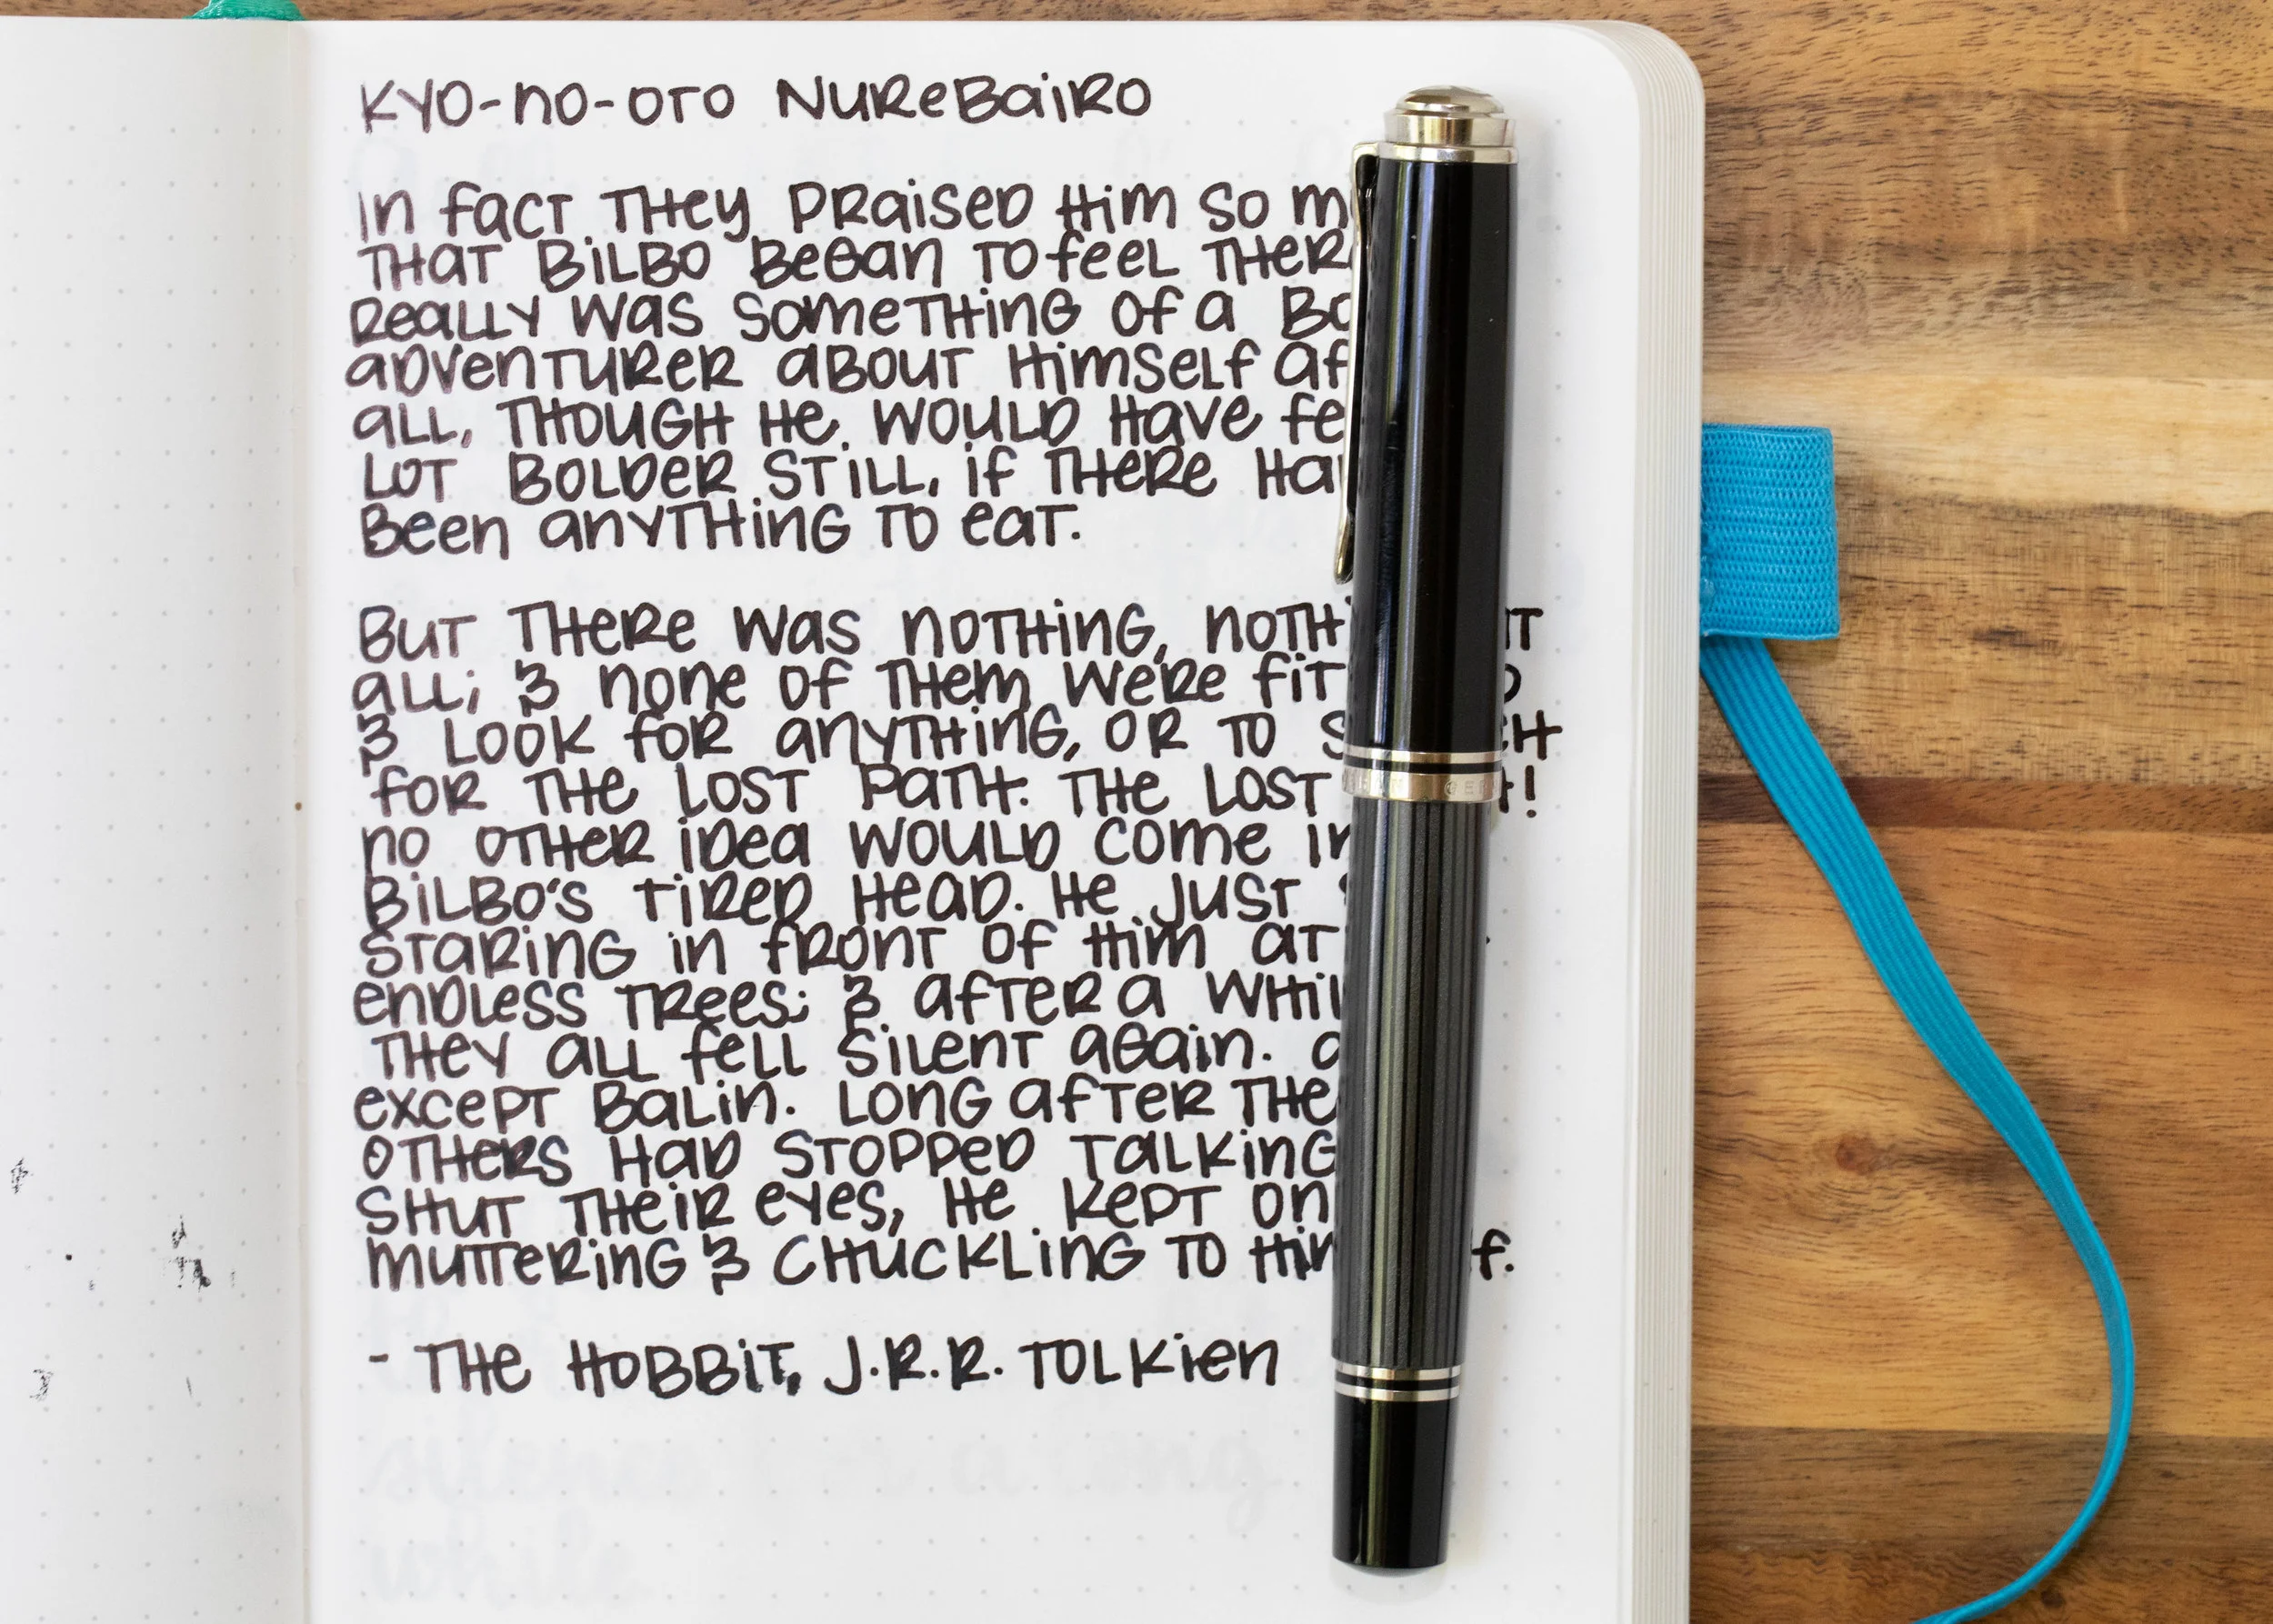 Kyo-no-oto Nurebairo
In fact they praised him so
that Bilbo began to feel
really was something of a
adventurer about himself
all, though he would have
lot bolder still, if there
been anything to eat.
But there was nothing,
all; & none of them were fit
& look for anything, or to
for the lost path. The lost
no other idea would come
Bilbo's tired head. He just
staring in front of him at
endless trees; & after a
they all fell silent again.
except Balin. Long after the
others had stopped talking
shut their eyes, he kept on
muttering & chuckling to
- The Hobbit, J.R.R. Tolkien